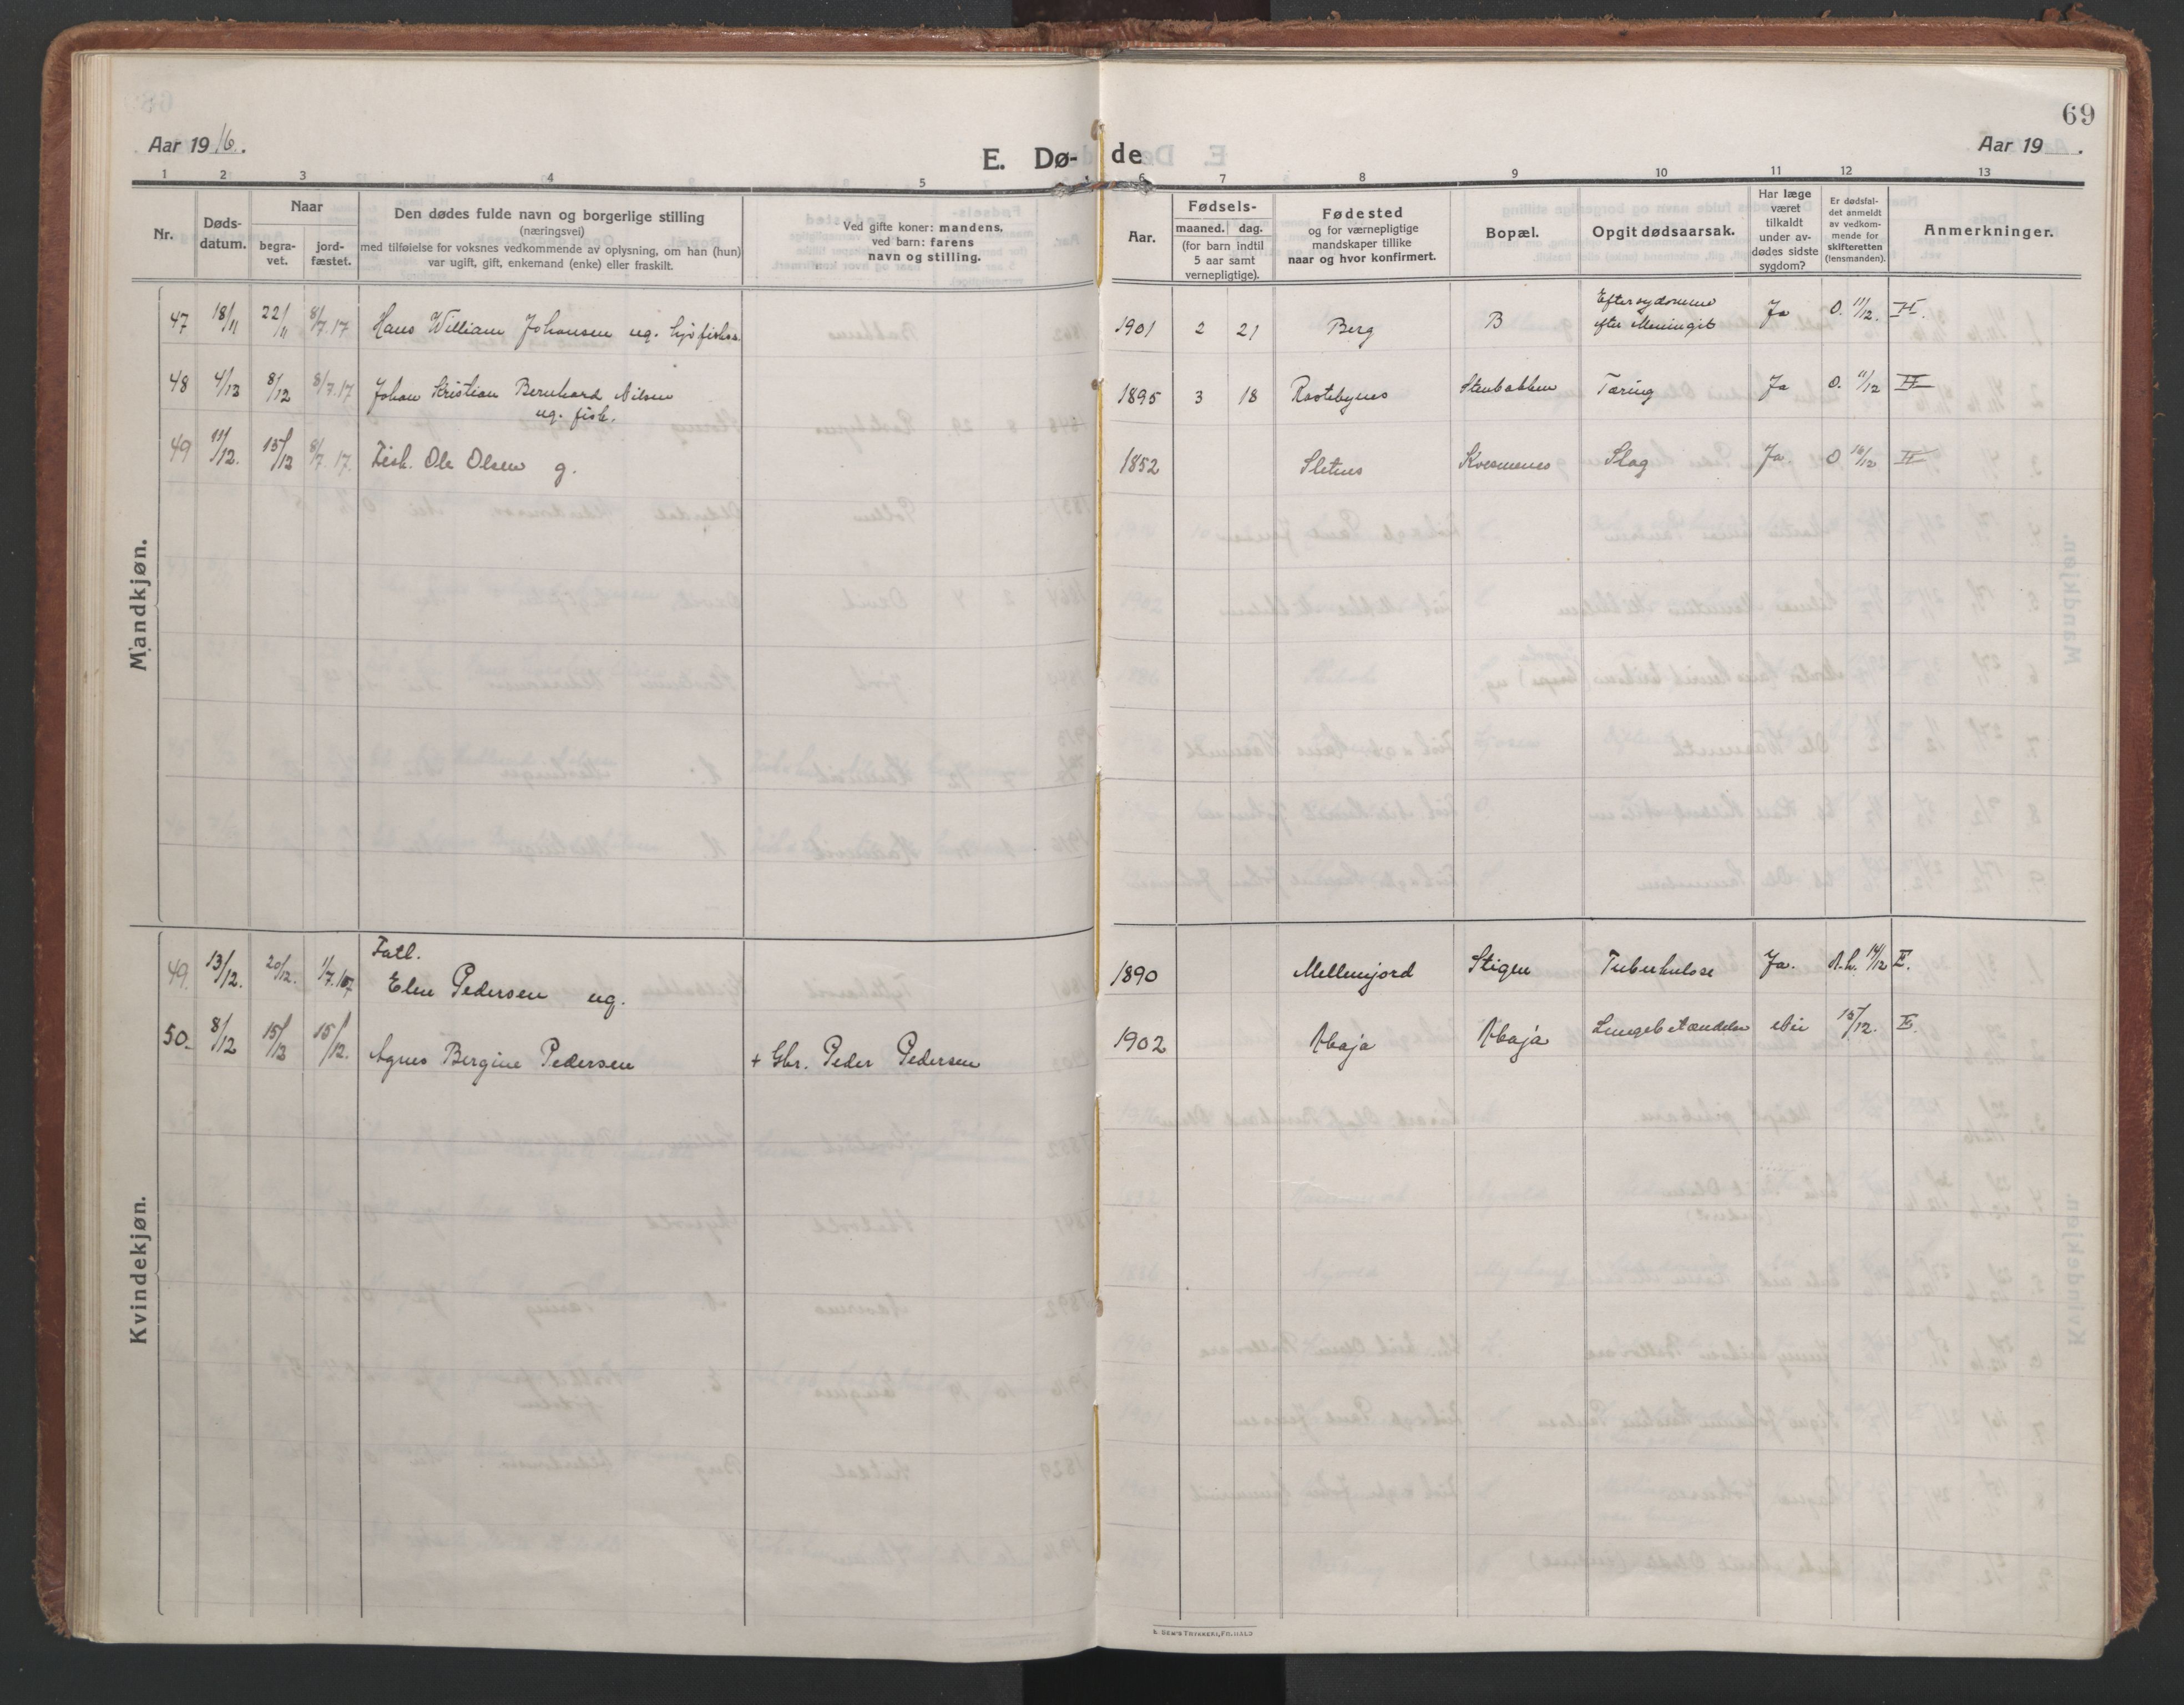 69
Aar 1916.
E. Dø-de
Aar 19 .
1 2 3 4 5 6 7 8 9 10 11 12 13
Nr.
Døds-
datum.
Naar
begra-
vet.
jord-
fæstet.
Den dødes fulde navn og borgerlige stilling
(næringsvei)
med tilføielse for voksnes vedkommende av oplysning, om han (hun)
var ugift, gift, enkemand (enke) eller fraskilt.
Ved gifte koner: mandens,
ved barn: farens
navn og stilling.
Aar.
Fødsels-
maaned. dag.
(for barn indtil
5 aar samt
vernepligtige).
Fødested
og for værnepligtige
mandskaper tillike
naar og hvor konfirmert.
Bopæl.
Opgit dødsaarsak.
Har læge
været
tilkaldt
under av-
dødes sidste
sygdom?
Er dødsfal-
det anmeldt
av vedkom-
mende for
skifteretten
(lensmanden).
Anmerkninger.
Mandkjøn.
47 18/11 22/11 8/7.17 Hans William Johansen ug. 1901 2 21 Berg B Eftersygdomme
efter Meningit Ja O. 11/12. II.
48 4/12 8/12 8/7.17 Johan Kristian Bernhard Nilsen 1895 3 18 Rastebynes Stenbakken Tæring Ja O. 11/12 II
ug. fisk.
49 11/12. 15/12 8/7.17. Fisk. Ole Olsen g. 1852 Sletnes Kvesmenes Slag Ja. O 16/12 II
Kvindekjøn.
49. 13/12. 20/12. 1/7.17 Fatl.
Elen Pedersen ug. 1890 Mellemjord Stigen Tuberkulose Ja. 14/12 II.
50. 8/12 15/12 15/12. Agnes Bergine Pedersen + Gbr. Peder Pedersen 1902 Abaja Abaja Lungebetændelse Nei 15/12. II.